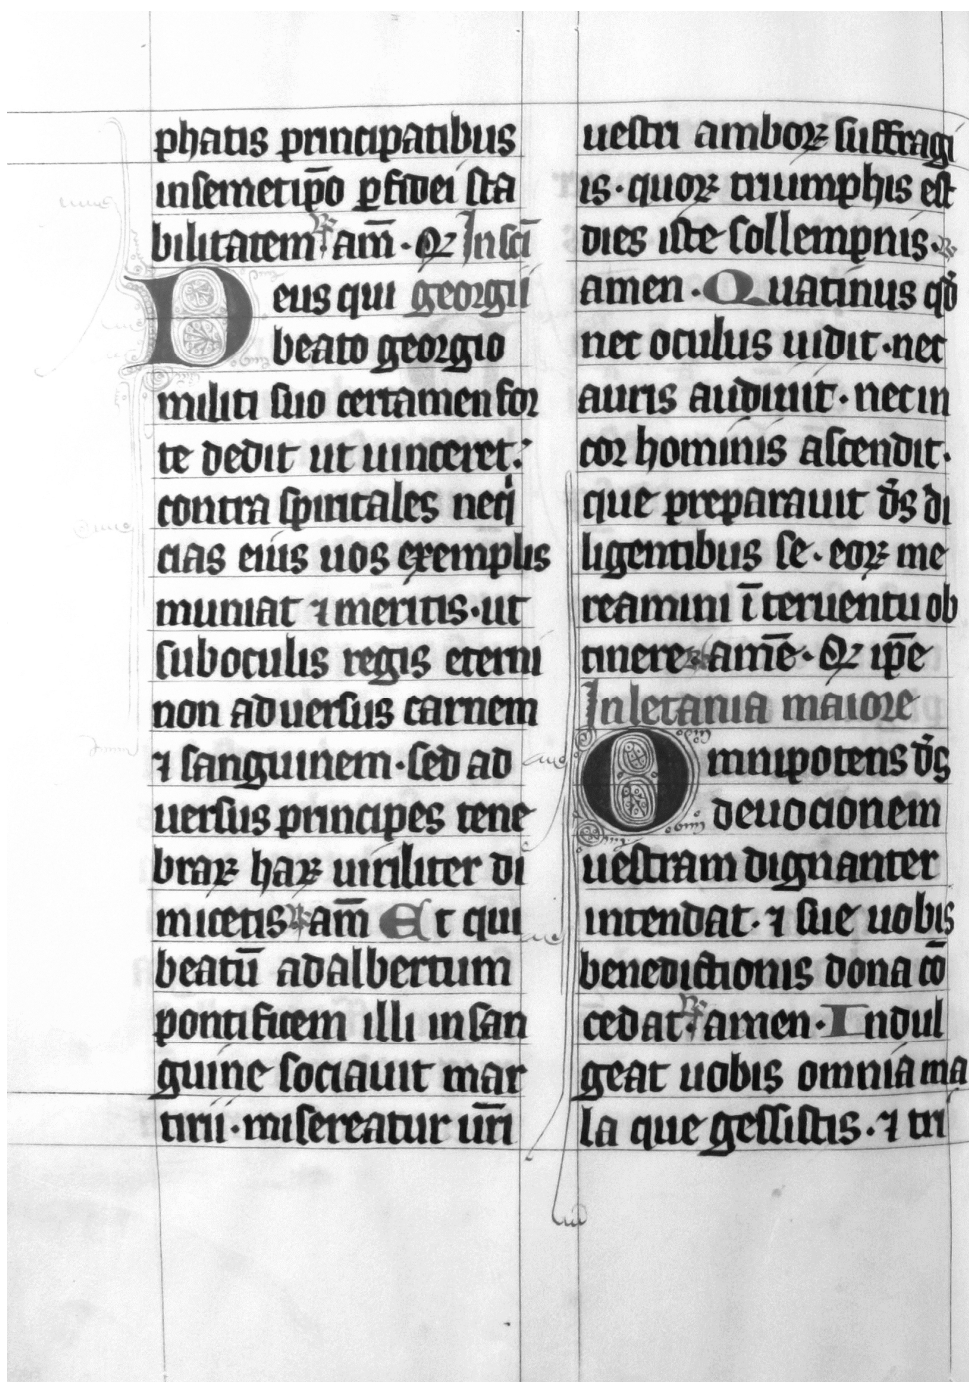 phatis principatibus
insemetip̄o ꝑfidei sta
bilitatem ℟ am̄ · Qꝛ In sc̄i
Deus qui georgii
beato georgio
militi suo certamen for
te dedit ut uinceret:
contra spiritales neq̇
cias eius uos exemplis
muniat ⁊ meritis · ut
sub oculis regis eterni
non aduersus carnem
⁊ sanguinem · sed ad
uersus principes tene
braꝝ haꝝ uiriliter di
micetis ℟ am̄ Et qui
beatū adalbertum
pontificem illi insan
guine sociauit mar
tirii · misereatur ur̄i
uestri amboꝝ suffragi
is · quoꝝ triumphis est
dies iste sollempnis · ℟
amen · Quatinus qd̄
nec oculus uidit · nec
auris audiuit · nec in
cor hominis ascendit ·
que preparauit d̄s di
ligentibus se · eoꝝ me
reamini īteruentu ob
tinere ℟ am̄e · Qꝛ ip̄e
In letania maiore
Omnipotens d̄s
deuocionem
uestram dignanter
intendat · ⁊ sue uobis
benedictionis dona cō
cedat · ℟ amen · Indul
geat uobis omnia ma
la que gessistis · ⁊ tri